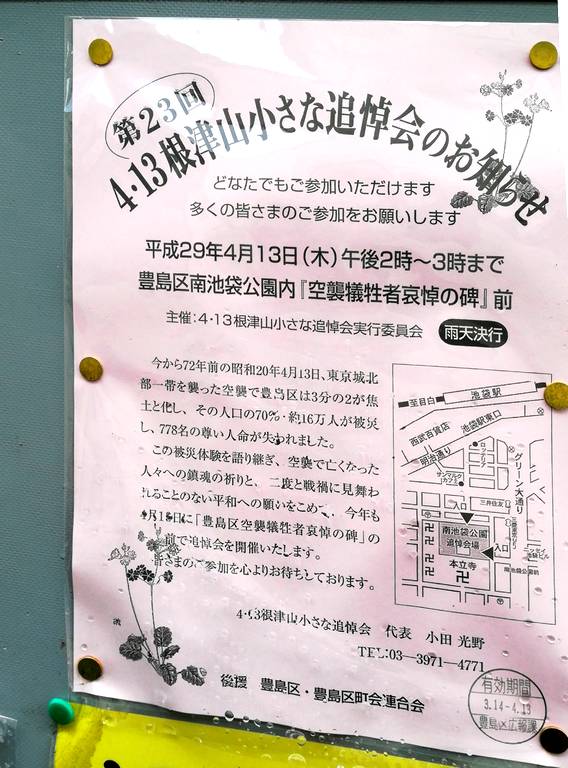 第23回
4・13根津山小さな追悼会のお知らせ
どなたでもご参加いただけます
多くの皆さまのご参加をお願いします
平成29年4月13日(木)午後2時〜3時まで
豊島区南池袋公園内『空襲犠牲者哀悼の碑』前
主催:4・13根津山小さな追悼会実行委員会 雨天決行
今から72年前の昭和20年4月13日、東京城北
部一帯を襲った空襲で豊島区は3分の2が焦
土と化し、その人口の70%・約16万人が被災
し、778名の尊い人命が失われました。
この被災体験を語り継ぎ、空襲で亡くなった
人々への鎮魂の祈りと、二度と戦禍に見舞わ
れることのない平和への願いをこめて、今年も
4月13日に「豊島区空襲犠牲者哀悼の碑」の
前で追悼会を開催いたします。
皆さまのご参加を心よりお待ちしております。
至目白
池袋駅
西武百貨店
池袋駅東口
明治通り
ロッテリア
サンマルクカフェ
グリーン大通り
入口
三井住友
南池袋公園
追悼会場
入口
本立寺
南池袋公園前
4・13根津山小さな追悼会 代表 小田 光野
TEL:03―3971―4771
後援 豊島区・豊島区町会連合会
有効期間
3.14-4.13
豊島区広報課